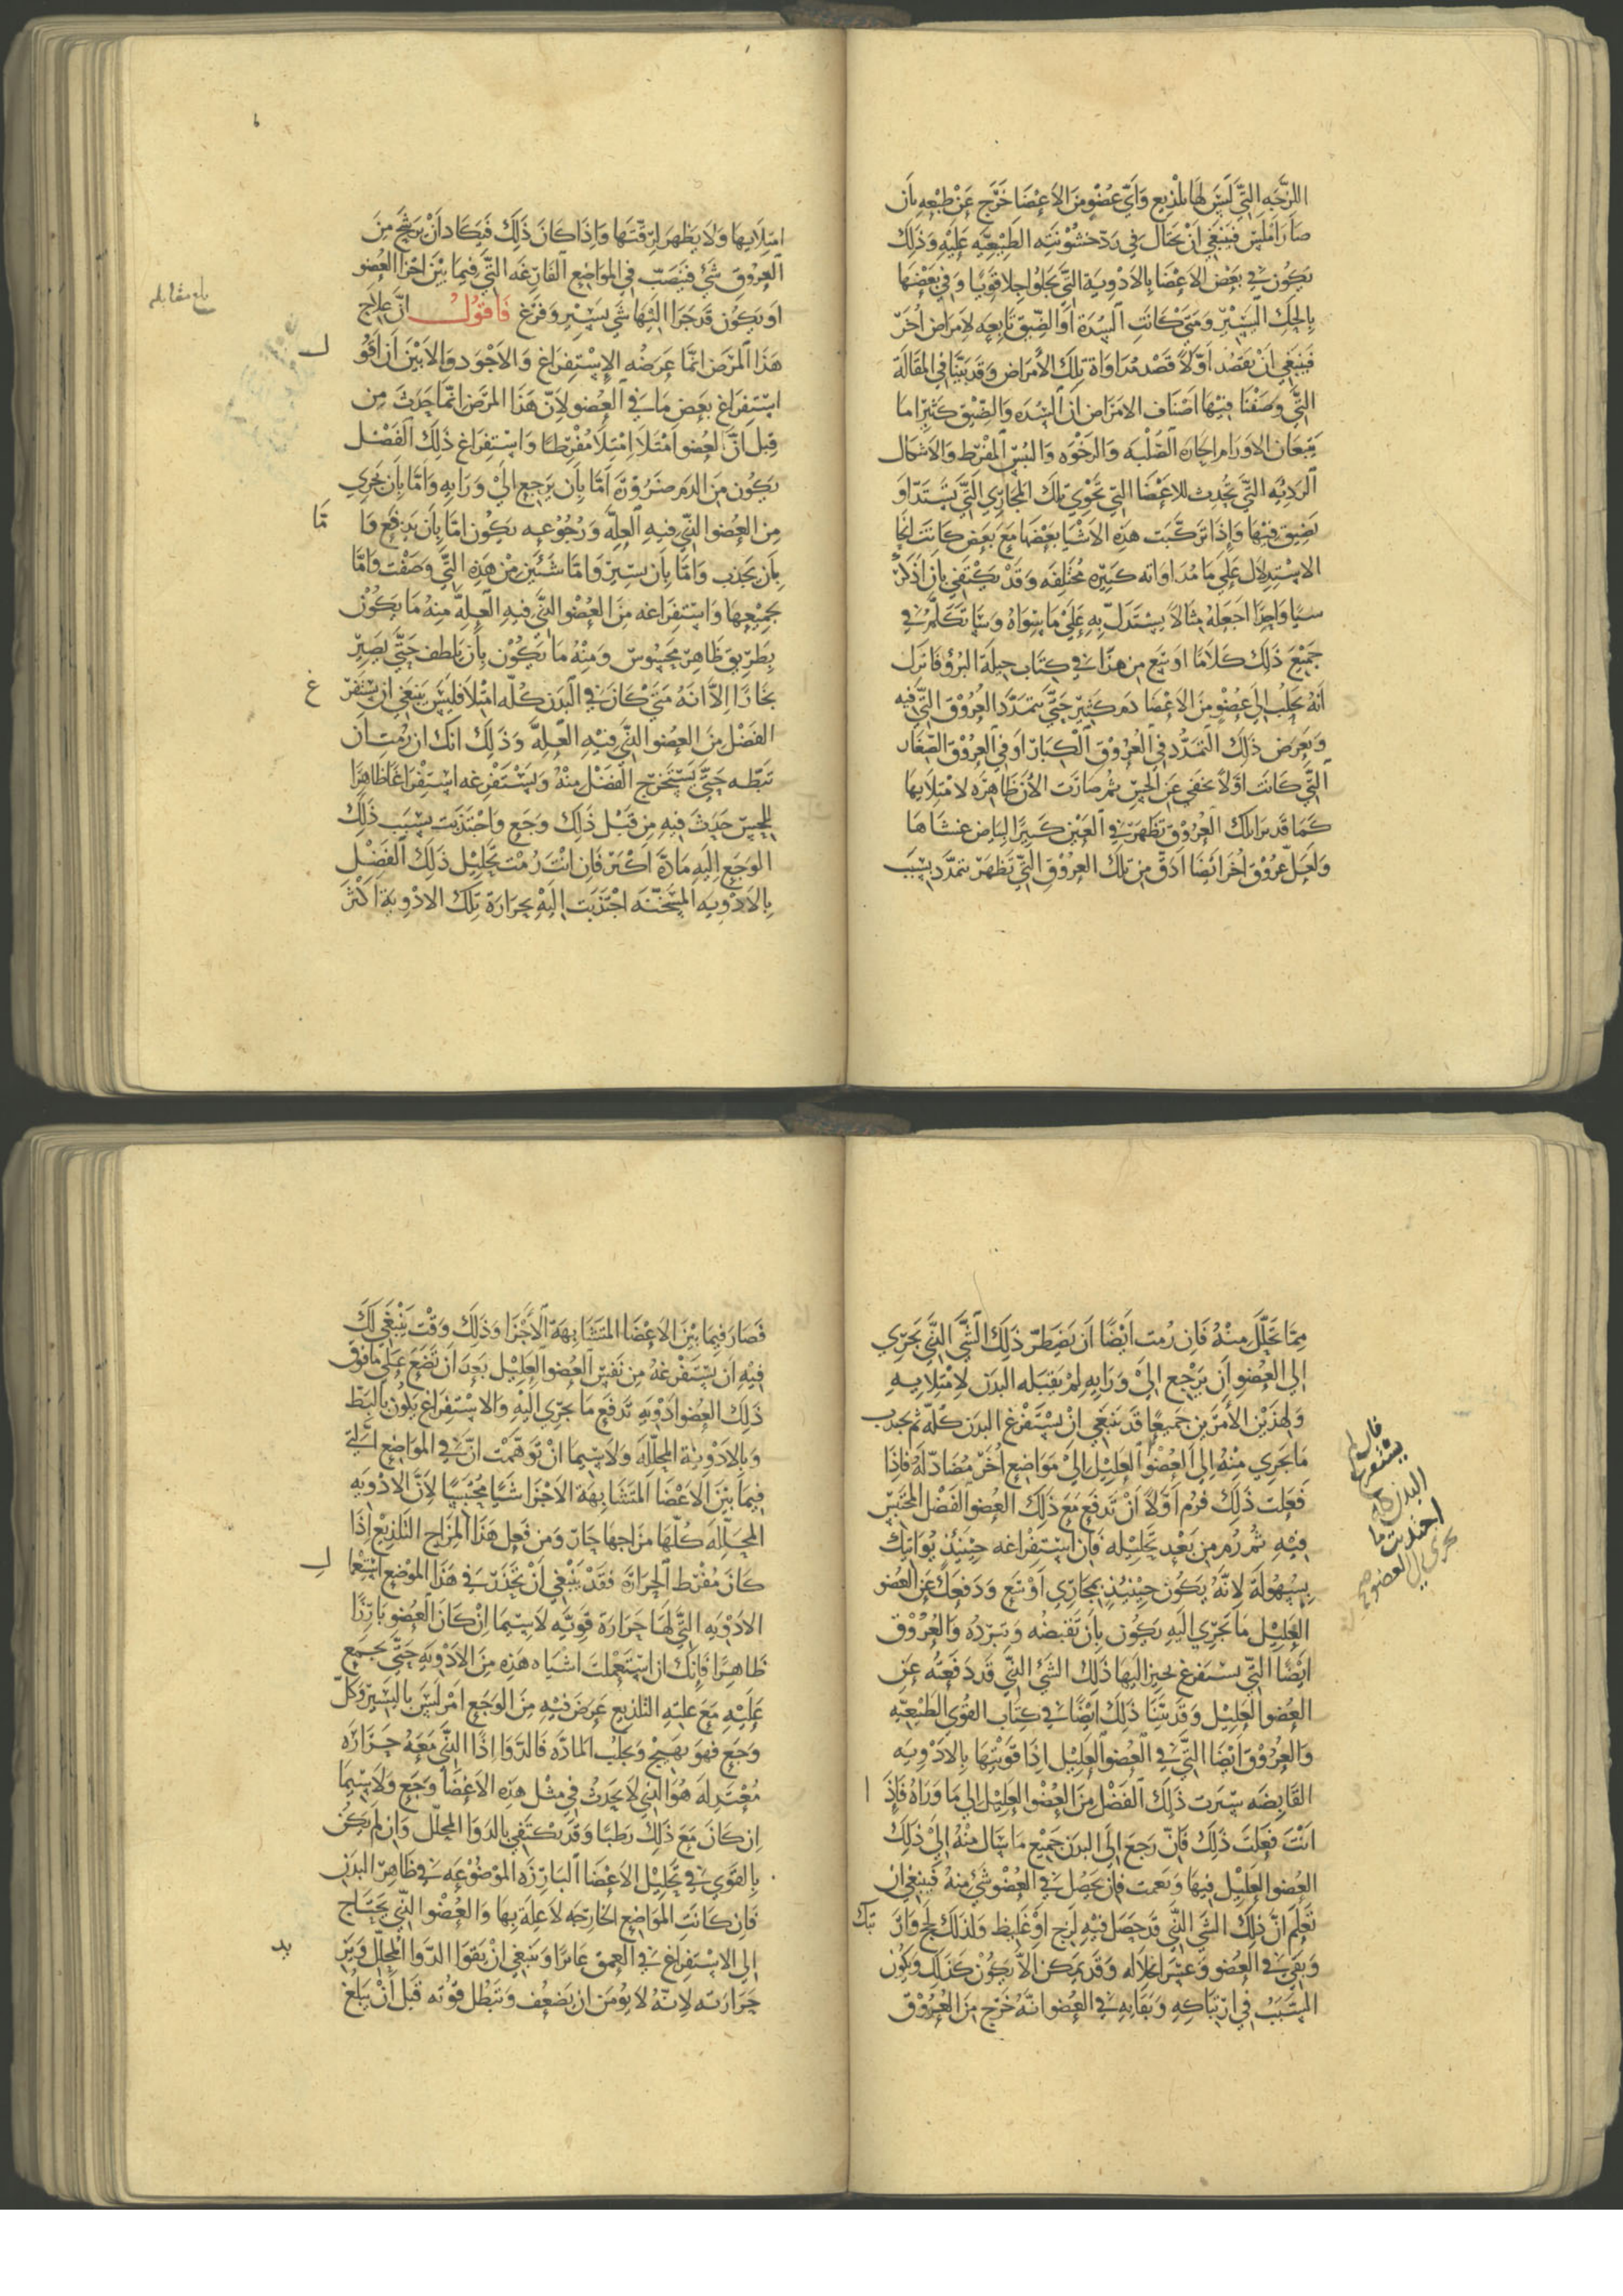 اللزجه التي ليس لها تلذيع واي عضو من الاعضا خرج عن طبعه بان
صار املس فينبغي ان تحتال في رد خشونته الطبيعيه عليه وذلك
يكون في بعض الاعضا بالادوية التي تجلوا جلا قويا وفي بعضها
بالحك اليسير ومتي كانت السدة او الضيق تابعه لامراض اخر
فينبغي ان تقصد اولا قصد مداواة تلك الامراض وقد بينا في المقالة
التي وصفنا فيها اصناف الامراض ان السده والضيق كثيرا ما
يتبعان الاورام الحاره الصلبه والرخوه واليبس المفرط والاشكال
الرديه التي تحدث للاعضا التي تحوي تلك المجاري التي تستد او
تضيق فيها واذا تركبت هذه الاشيا بعضها مع بعض كانت انحا
الاستدلال علي مداواته كثيره مختلفه وقد يكتفي بان اذكر
شيا واحدا اجعله مثالا يستدل به علي ما سواه وسناتكلم في
جميع ذلك كلاما اوسع من هذا في كتاب حيلة البرؤ فانزل
انه تحلب الي عضو من الاعضا دم كثير حتي تتمدد العروق التي فيه
ويعرض ذلك التمدد في العروق الكبار او في العروق الصغار
التي كانت اولا تخفي عن الحس ثم صارت الان ظاهره لامتلايها
كما قد نرا تلك العروق تظهر في العين كثيرا لبياض غشاها
ولعل عروق اخر ايضا ادق من تلك العروق التي تظهر تتمدد بسبب
امتلايها ولا يظهر لرقتها واذا كان ذلك فيكاد ان يرشح من
العروق شي فينصب في المواضع الفارغه التي فيما بين اجزا العضو
او يكون قد جرا اليها شي يسير وفرغ فاقول ان علاج
هذا المرض انما عرضه الاستفراغ والاجود والابين ان اقو ل
استفراغ بعض ما في العضو لان هذا المرض انما حدث من
قبل ان العضو امتلا امتلا مفرطا واستفراغ ذلك الفضل
يكون من الدم ضرورة اما بان يرجع الي ورايه واما بان يجري
من العضو الذي فيه العله ورجوعه يكون اما بان يدفع وا ما
بان يجذب واما بان يسير واما شئين من هذه التي وصفت واما
بجميعها واستفراغه من العضو الذي فيه العله منه ما يكون
بطريق ظاهر محسوس ومنه ما يكون بان يلطف حتي يصير
بخارا الا انه متي كان في البدن كله امتلا فليس ينبغي ان يستفر غ
الفضل من العضو الذي فيه العله وذلك انك ان رمت ان
تبطه حتي يستخرج الفضل منه ويستفرغه استفراغا ظاهرا
للحس حدث فيه من قبل ذلك وجع واجتذبت بسبب ذلك
الوجع اليه مادة اكثر فان انت رمت تحليل ذلك الفضل
بالادويه المسخنه اجتذبت اليه بحرارة تلك الادوية اكثر
بلغ مقابله
مما تحلل منه فان رمت ايضا ان يضطر ذلك الشي الذي يجري
الي العضو ان يرجع الي ورايه لم يقبله البدن لامتلايه
ولهذين الامرين جميعا قد ينبغي ان يستفرغ البدن كله ثم يجذب
ما يجري منه الي العضو العليل الي مواضع اخر مضادة له فاذا
فعلت ذلك فرم اولا ان تدفع مع ذلك العضو الفضل المحتبس
فيه ثم رم من بعد تحليله فان استفراغه حينئذ يواتيك
بسهولة لانه يكون حينئذ بمجاري اوسع ودفعك عن العضو
العليل ما يجري اليه يكون بان تقبضه وتبرده والعروق
ايضا التي يستفرغ يحيز اليها ذلك الشي الذي قد دفعته عن
العضو العليل وقد بينا ذلك ايضا في كتاب القوي الطبيعيه
والعروق ايضا التي في العضو العليل اذا قويتها بالادويه
القابضه سيرت ذلك الفضل من العضو العليل الي ما وراه فاذ ا
انت فعلت ذلك فان رجع الي البدن جميع ما سال منه الي ذلك
العضو العليل فبها ونعمت فان يحصل في العضو شي منه فينبغي ان
تعلم ان ذلك الشي الذي قد حصل فيه لزج او غليظ ولذلك لحج وار تبك
وبقي في العضو وعسر انحلاله وقد يمكن الا يكون كذلك ويكون
السبب في ارتباكه وبقايه في العضو انه خرج من العروق
البدن كله
فصار فيما بين الاعضا المتشابهة الاجزا وذلك وقت ينبغي لك
فيه ان يستفرغه من نفس العضو العليل بعد ان تضع علي ما فوق
ذلك العضو ادويه تدفع ما يجري اليه والاستفراغ يكون بالبط
وبالادوية المحلله ولا سيما ان توهمت ان في المواضع التي
فيما بين الاعضا المتشابهة الاجزا شيا محتبسا لان الادويه
المحلله كلها مزاجها حار ومن فعل هذا المزاج التلذيع اذا
كان مفرط الحرارة فقد ينبغي ان تحذر في هذا الموضع استعما ل
الادويه التي لها حرارة قويه لا سيما ان كان العضو بارزا
ظاهرا فانك ان استعملت اشباه هذه من الادويه حتي يجمع
عليه مع علته التلذيع عرض فيه من الوجع امر ليس باليسير وكل
وجع فهو يهيج ويجلب المادة فالدوا اذا الذي معه حرارة
معتدله هو الذي لا يحدث في مثل هذه الاعضا وجع ولا سيما
ان كان مع ذلك رطبا وقد يكتفي بالدوا المحلل وان لم يكن
بالقوي في تحليل الاعضا البارزه الموضوعه في ظاهر البدن
فان كانت المواضع الخارجه لا علة بها والعضو الذي يحتاج
الي الاستفراغ في العمق غايرا وينبغي ان يقوا الدوا المحلل ويز يد
حرارته لانه لا يومن ان يضعف وتبطل قوته قبل ان يبلغ